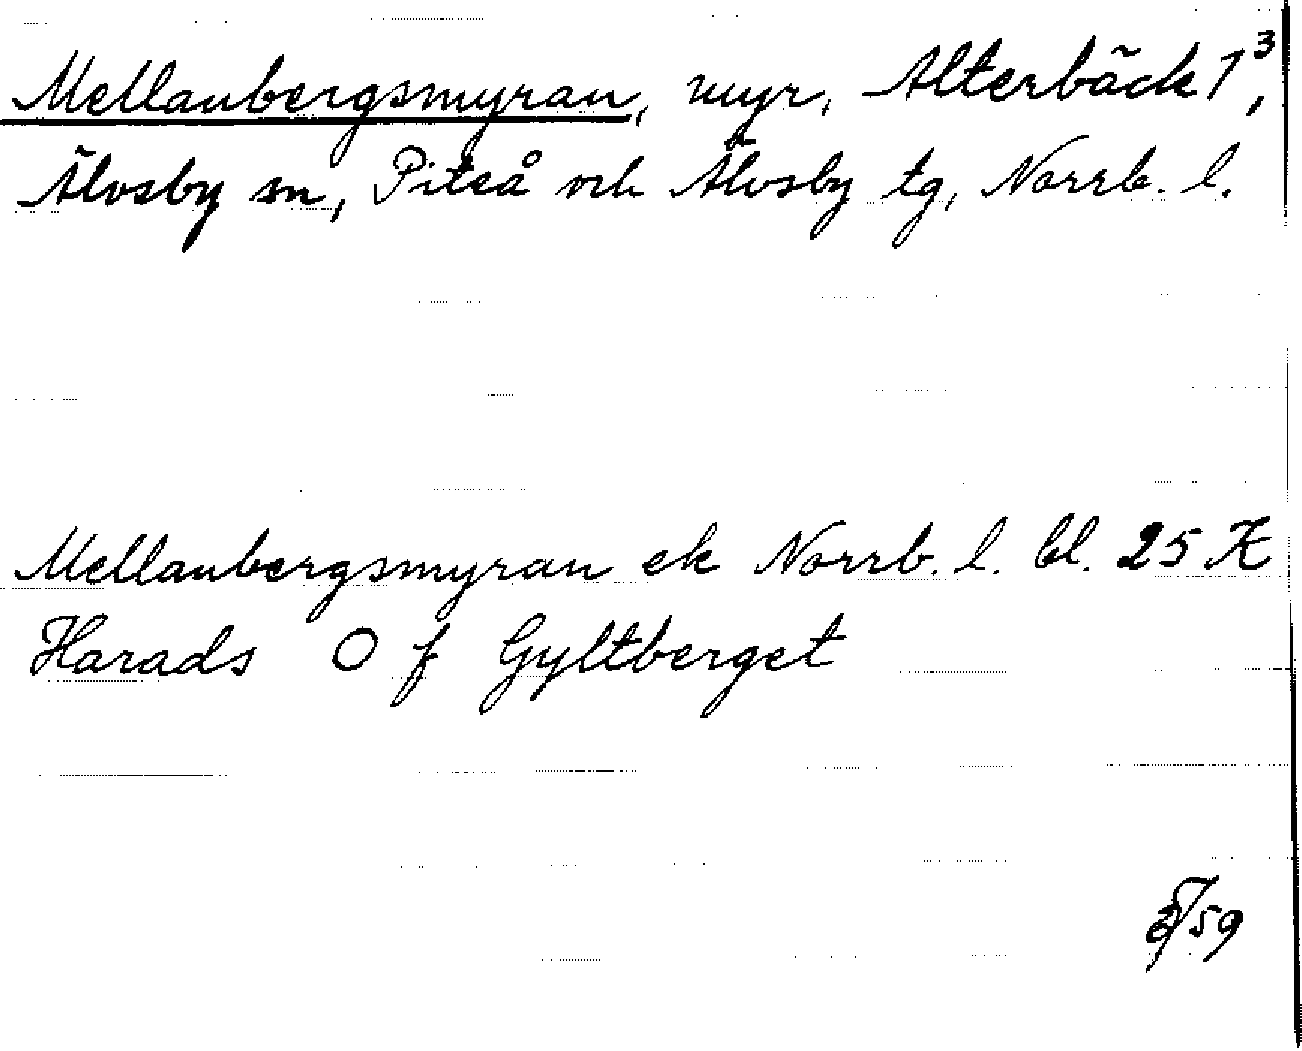 Mellanbergsmyran, myr, Alterbäck 1³,
Älvsby sn, Piteå och Älvsby tg, Norrb. l.
Mellanbergsmyran ek Norrb. l. bl. 25 K
Harads O f Gyltberget
59